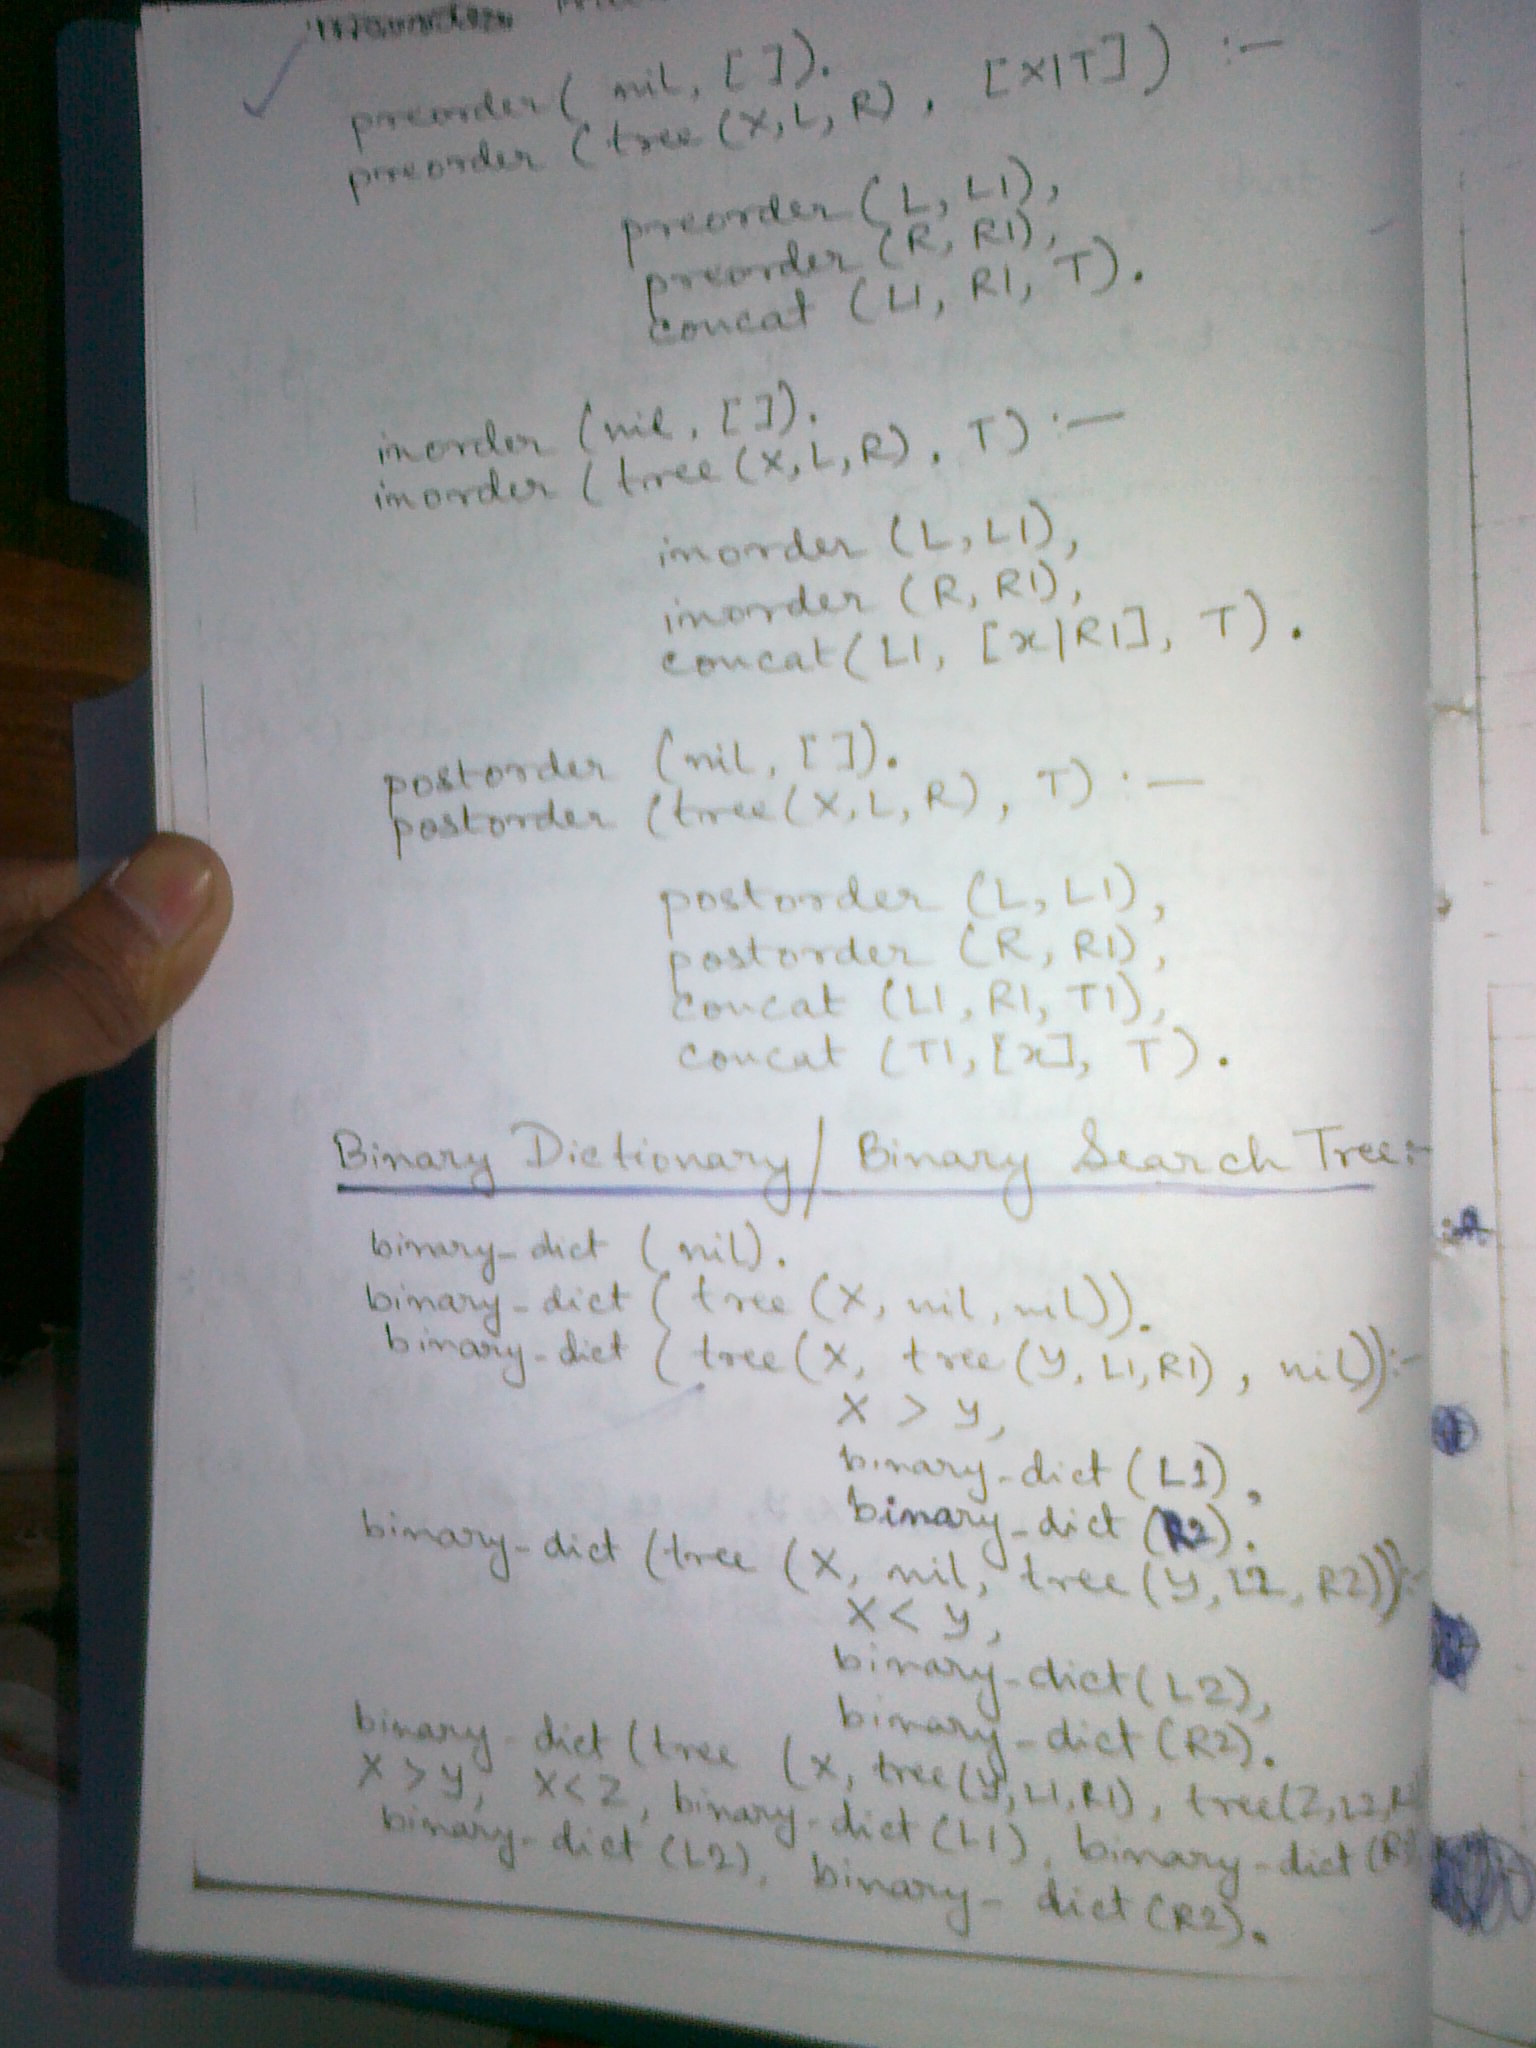 preorder ( nil, [ ] ).
preorder ( tree (X, L, R) , [X|T] ) :-
preorder ( L, L1),
preorder (R, R1),
concat (L1, R1, T).
inorder (nil, [ ]).
inorder ( tree (X, L, R) , T) :-
inorder (L, L1),
inorder (R, R1),
concat (L1, [x|R1], T).
postorder (nil, [ ]).
postorder (tree (X, L, R) , T) :-
postorder (L, L1),
postorder (R, R1),
concat (L1, R1, T1),
concat (T1, [x], T).
Binary Dictionary / Binary Search Tree:-
binary-dict (nil).
binary-dict ( tree (X, nil, nil)).
binary-dict ( tree (X, tree (Y, L1, R1) , nil)):-
X > Y,
binary-dict (L1),
binary-dict (R2).
binary-dict (tree (X, nil, tree (Y, L2, R2))):-
X < Y,
binary-dict (L2),
binary-dict (R2).
binary-dict (tree (X, tree (Y, L1, R1), tree(Z, L2,
X > Y, X < Z, binary-dict (L1), binary-dict (R1)
binary-dict (L2), binary-dict (R2).